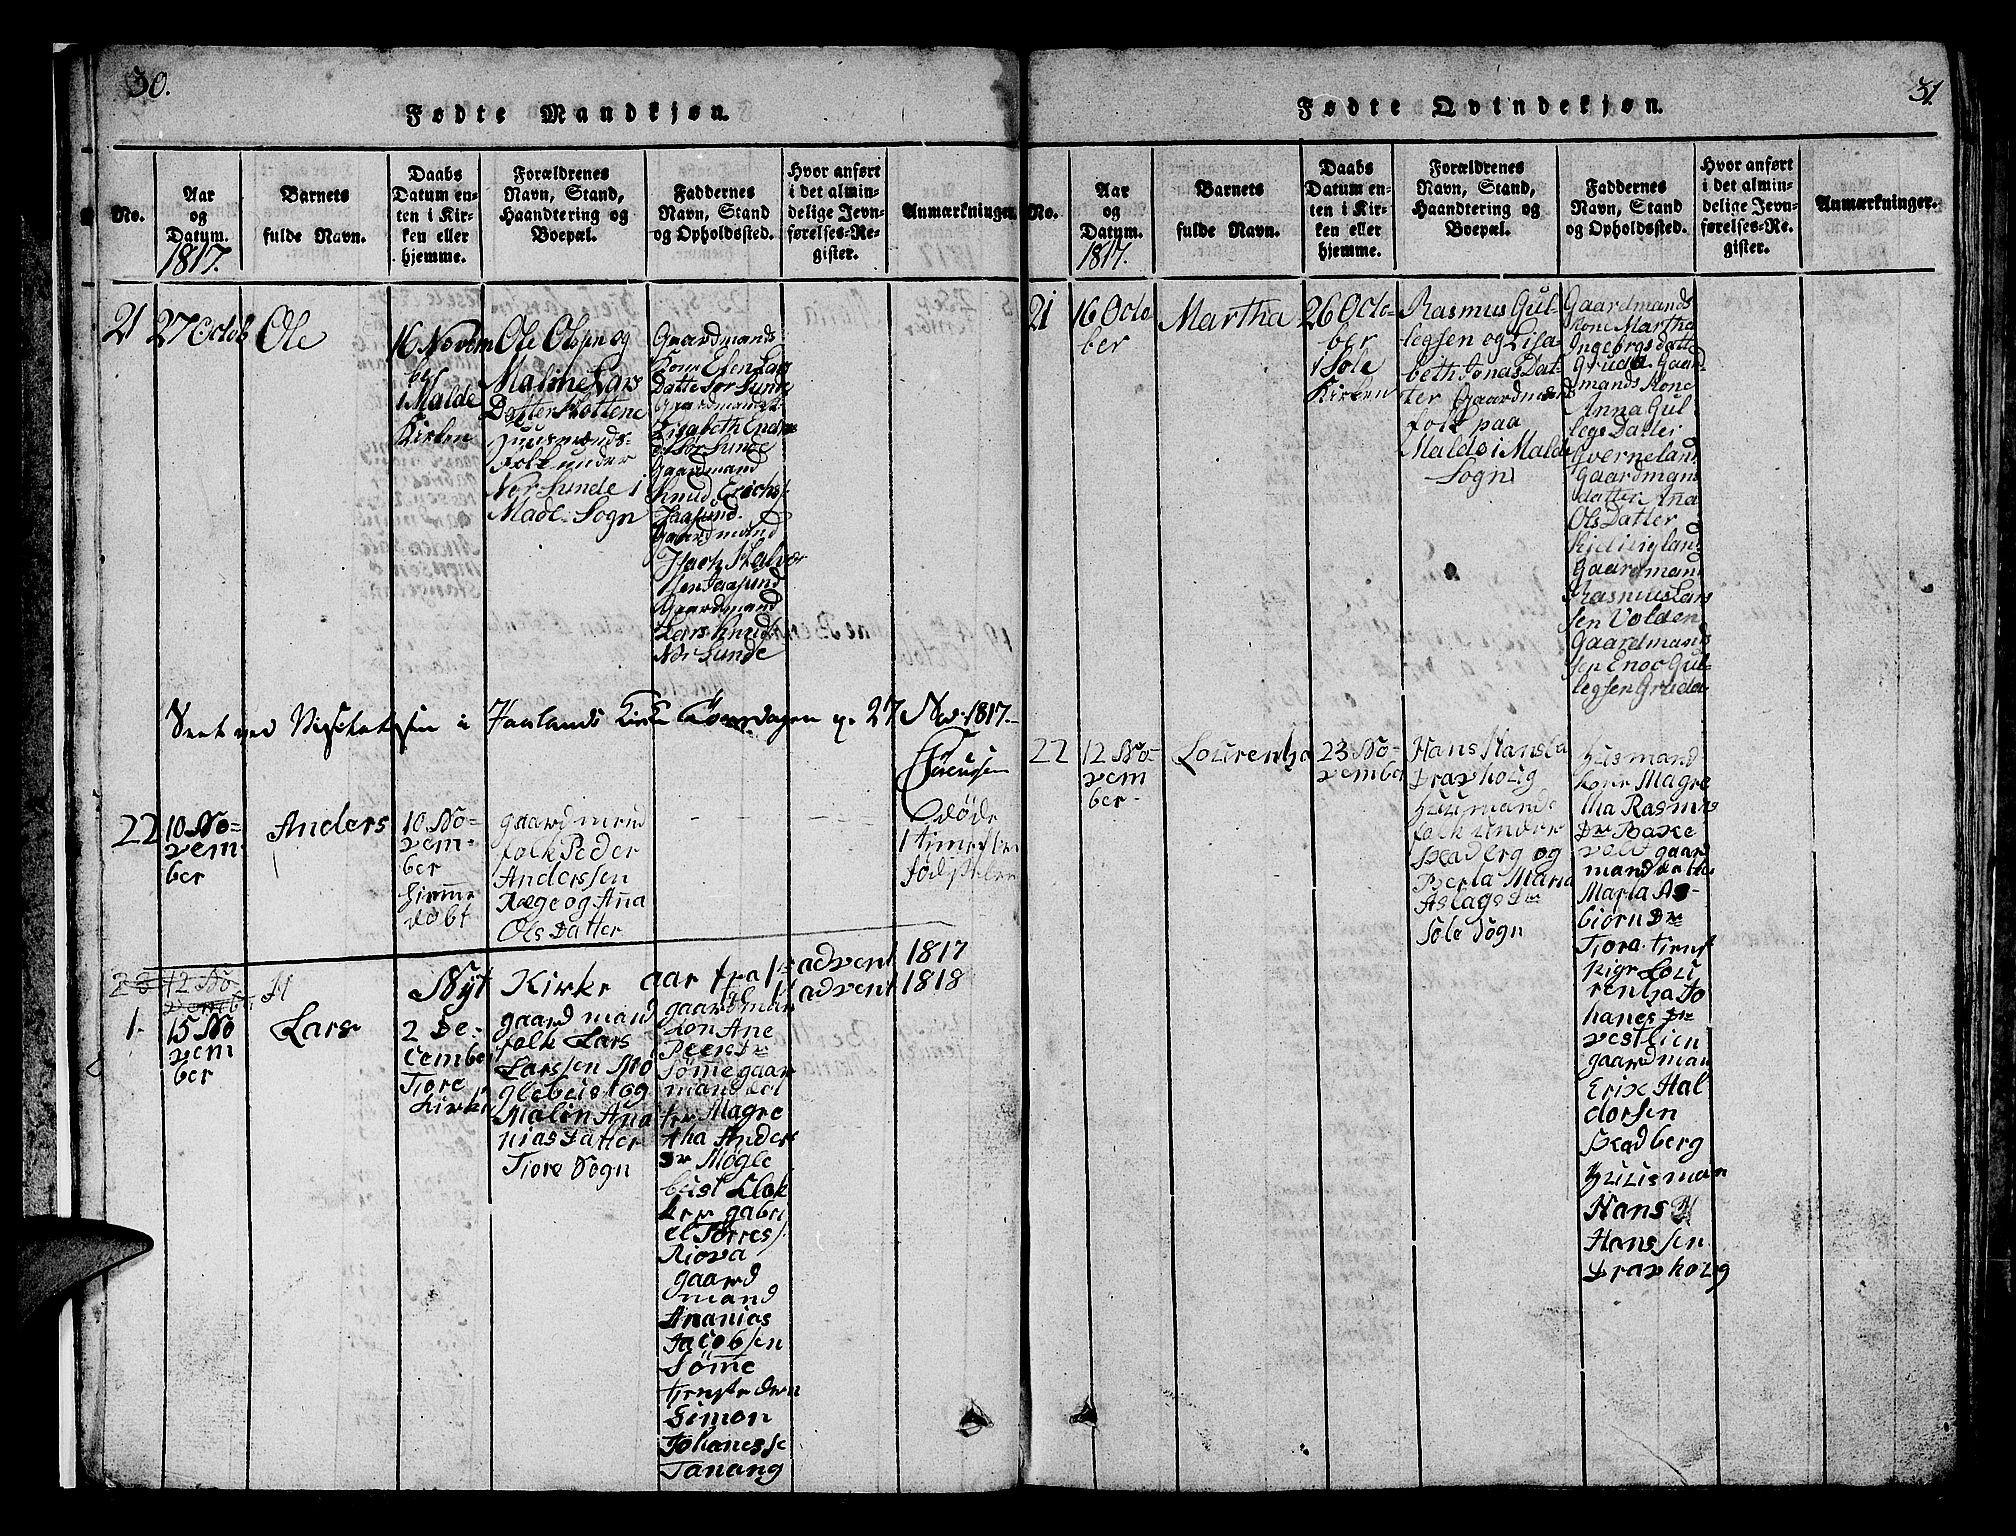 30.
Fødte Mandkjøn.
No.
Aar
og
Datum.
1817.
Barnets
fulde Navn.
Daabs
Datum en-
ten i Kir-
ken eller
hjemme.
Forældrenes
Navn, Stand,
Haandtering og
Boepæl.
Faddernes
Navn, Stand
og Opholdssted.
Hvor anført
i det almin-
delige Jevn-
førelses-Re-
gister.
Anmærkninger.
21
27 Octob
Ole
16 Novem
ber
i Malde
Kirken
Ole Olsen og
Maline Lars
Datter
Huusmænds-
Folk under
Nor Sunde i
Made Sogn
Gaardmands
Kone Elen Lars
Datte Sør Sunde
Gaardmands
Lisabeth Endre
d. Sør Sunde
Gaardmand
Knud Erichs
Jaasund
Gaardmand
Jsach Halvor
sen Jaasund
Gaardmand
Lars Knuds
Nør Sunde
Seet ved Visitatsen i Haalands Kirke Torsdagen d. 27 Nov. 1817.
Sørensen
22
10 No-
vem-
ber
Anders
10 No-
vem-
ber
himme
døbt
gaardmend
folk Peder
Anderssen
Ræge og Ana
Ols Datter
døde
1 time efter
fødselen
Nyt Kirke aar fra 1te advent 1817
til 1te advent 1818
23
12 No-
vember
N
1.
15 No
vem
ber
Lars
2 De-
cember
Tiore
Kirke
gaardmand
folk Lars
Larssen Mø
glebust og
Malin Ana
nias datter
Tiore Sogn
gaardman
kon Ane
Peers Dr
Sømme gaar
mands dat
ter Magre
tha Anders
Dr Møgle
bust Klok
ker gabri
el Torress
Risva
gaard
mand
Ananias
Jacobsen
Sømme
tieneste dren
Simon
Johanesse
Tanang
31
Fødte Qvindekjøn.
No.
Aar
og
Datum.
1817.
Barnets
fulde Navn.
Daabs
Datum en-
ten i Kir-
ken eller
hjemme.
Forældrenes
Navn, Stand,
Haandtering og
Boepæl.
Faddernes
Navn, Stand
og Opholdssted.
Hvor anført
i det almin-
delige Jevn-
førelses-Re-
gister.
Anmærkninger.
21
16 Octo
ber
Martha
26 Octo-
ber
i Sole
Kirken
Rasmus Gul-
legsen og Lisa-
beth Jonas Dat-
ter Gaardmands
folk paa
Malde i Malde
Sogn
Gaardmands
kone Martha
Ingebrgs datte
Gruda Gaard
mands Kone
Anna Gul
legs Datter
Qverneland
Gaardmans
datter Ana
Ols Datter
Gaardmand
Rasmus Lars
sen Volden
Gaardmands
sen Enoc Gul-
legsen Gruda
22
12 No-
vem
ber-
Lourentza
23 No-
vember
Hans Hansen
Draxholg
Huusmands
folk under
Skadberg og
Berta Maria
Aslags Dr
Sole Sogn
Husmand
kone Magre
tha Rasmus
Dr Baxe
valt gaard
mand datter
Marta As-
biorn Dr
Tiora tienst
pige Lou
rentza Jo
hanes Dr
vestlien
gaardman
Erix Hal
dorsen
Skadberg
Huusman
Hans H
Hanssen
Draxholg